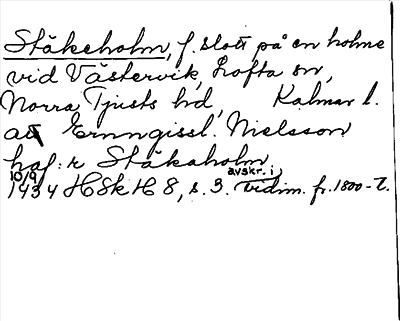 Stäkeholm, f. slott på en holme
vid Västervik, Lofta sn,
Norra Tjusts hd, Kalmar l.
att Ernngissl. Nielsson
haf:r Stäkaholm
10/9 avskr. i
1434 HSkH 8, s. 3. vidim. fr. 1800-t.